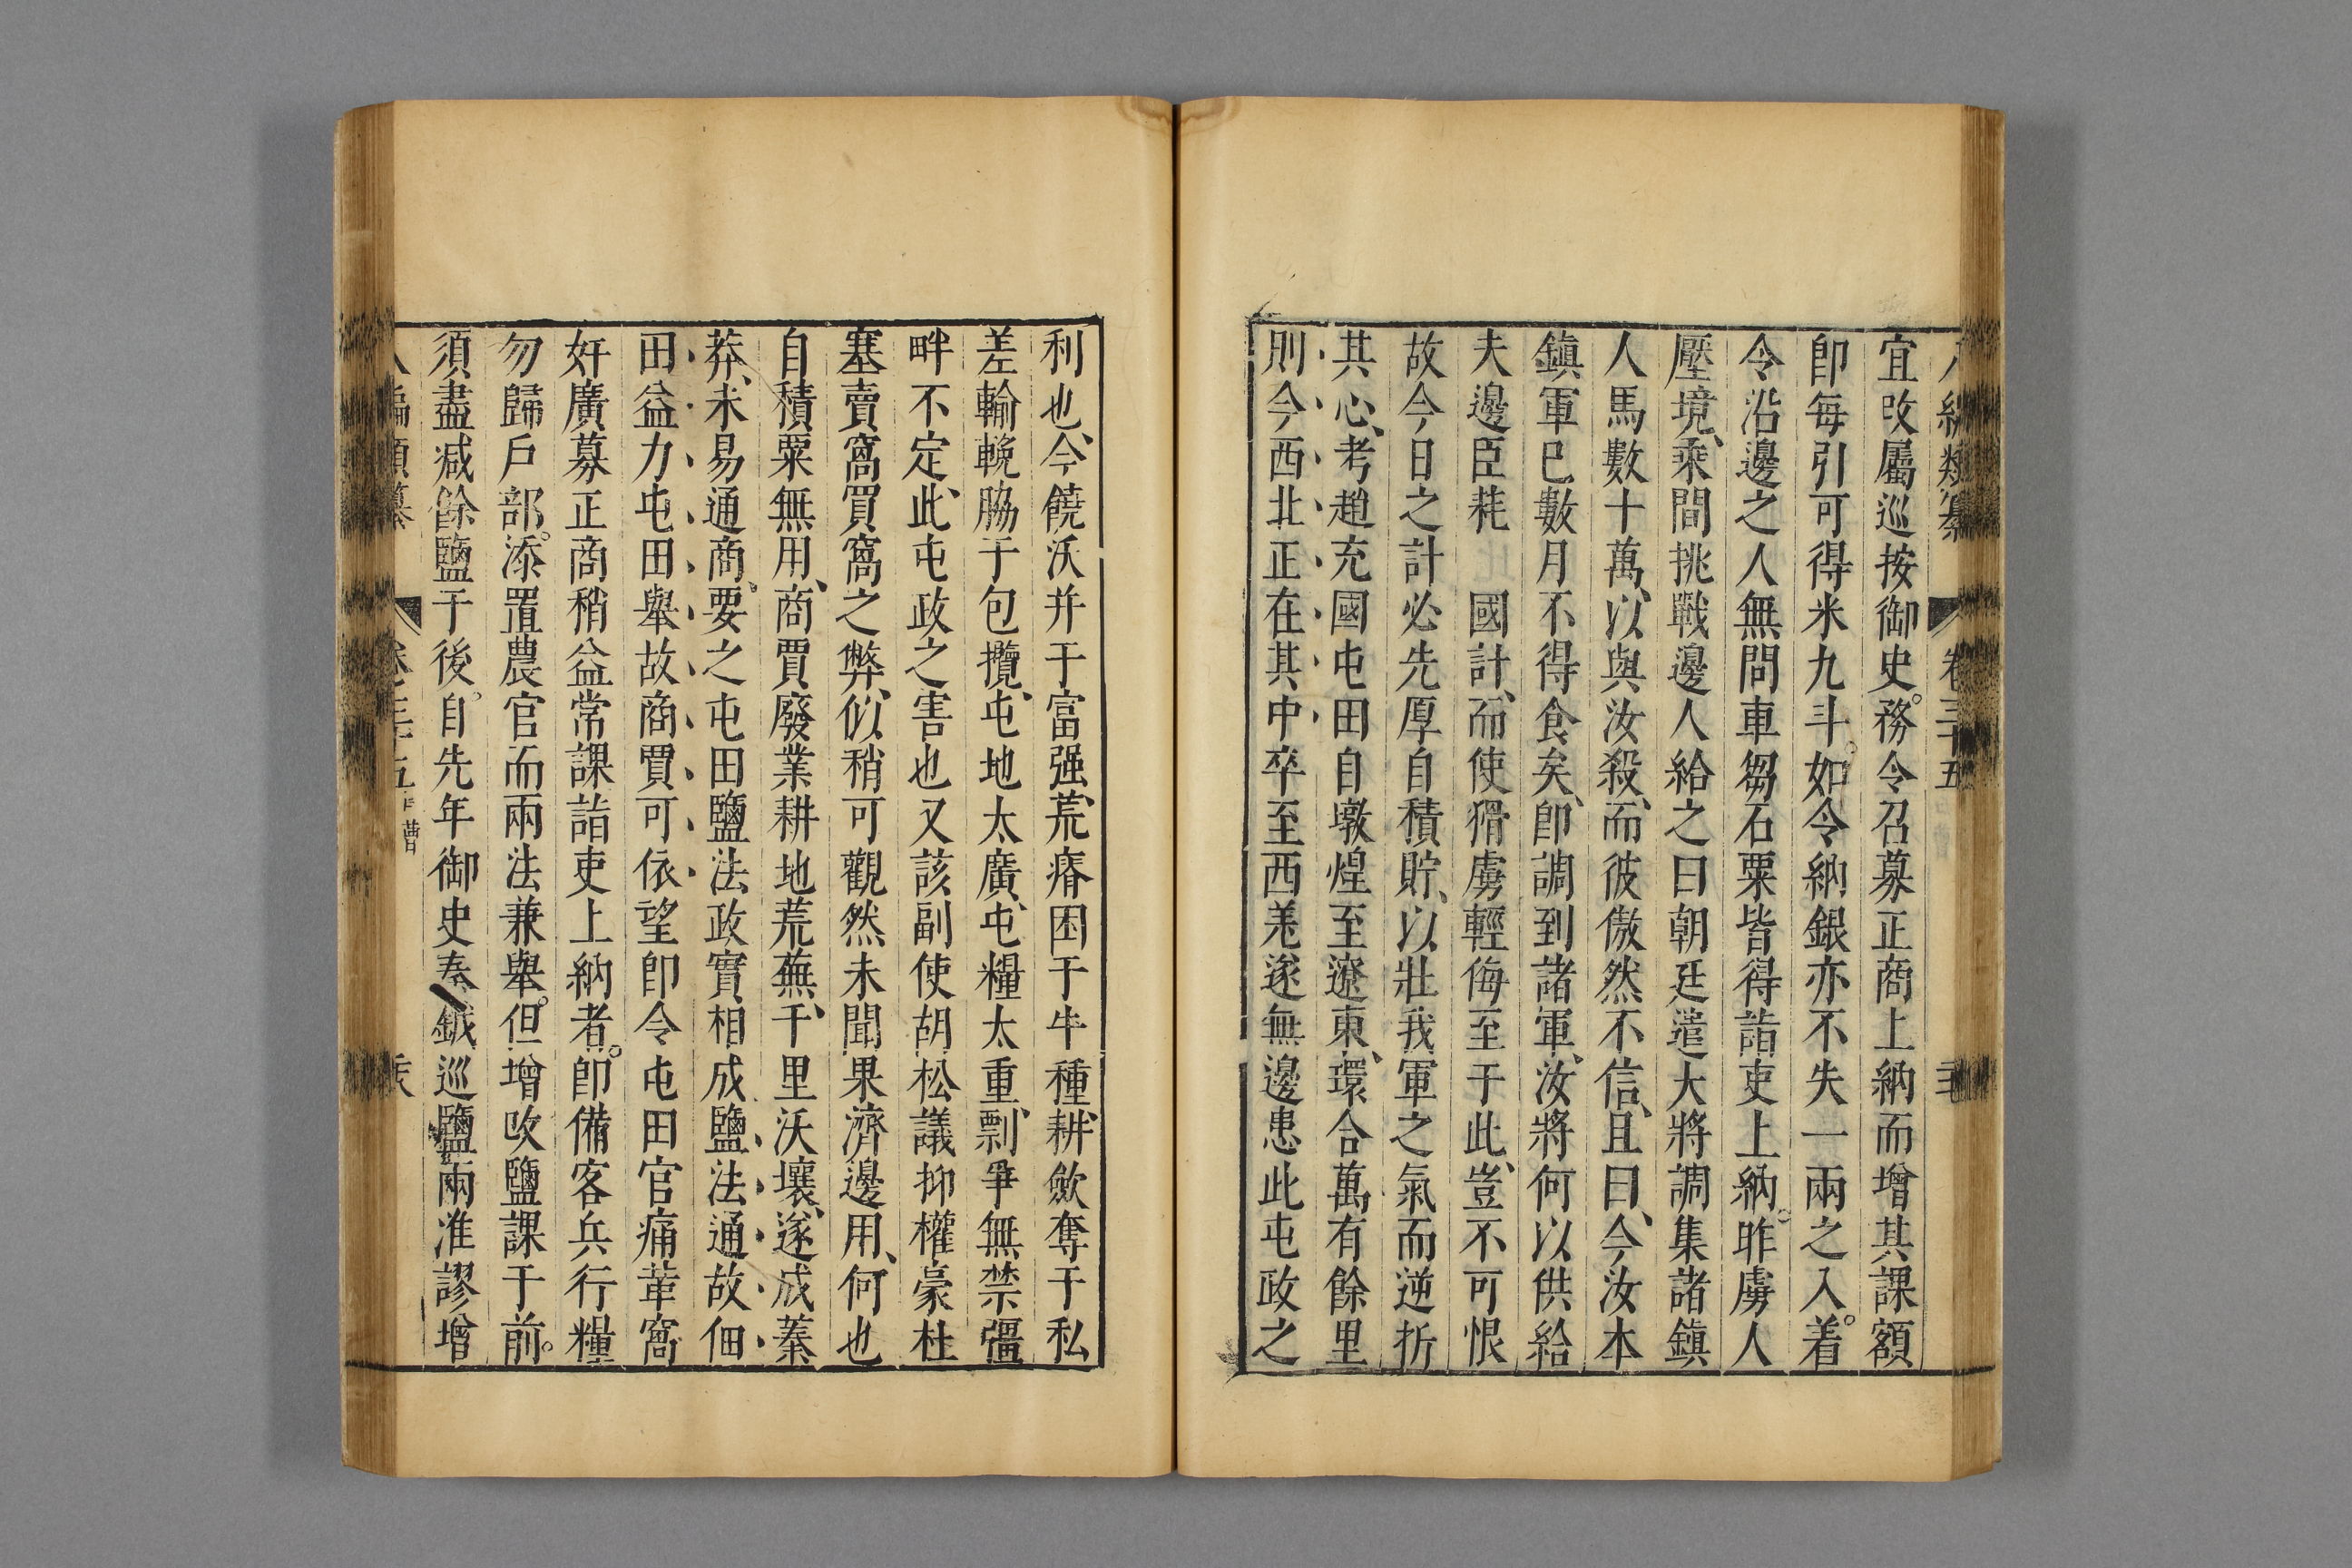 八編類纂 卷三十五
宜改屬巡按御史務令召募正商上納而增其課額
卽每引可得米九斗如令納銀亦不失一兩之入着
令沿邊之人無問車芻石粟皆得詣吏上納昨虜人
壓境乘間挑戰邊人給之曰朝廷遣大將調集諸鎮
人馬數十萬以與汝殺而彼傲然不信且曰今汝本
鎮軍已數月不得食矣卽調到諸軍汝將何以供給
夫邊臣耗 國計而使猾虜輕侮至于此豈不可恨
故今日之計必先厚自積貯以壯我軍之氣而逆折
其心考趙充國屯田自墩煌至遼東環合萬有餘里
則今西北正在其中卒至西羌遂無邊患此屯政之
利也今饒沃并于富强荒瘠困于牛種耕歛奪于私
差輸輓脇于包攬屯地太廣屯糧太重剽爭無禁彊
畔不定此屯政之害也又該副使胡松議抑權豪杜
塞賣窩買窩之弊似稍可觀然未聞果濟邊用何也
自積粟無用商賈廢業耕地荒蕪千里沃壤遂成蓁
莽未易通商要之屯田鹽法政實相成鹽法通故佃
田益力屯田舉故商賈可依望卽令屯田官痛革窩
奸廣募正商稍益常課詣吏上納者卽備客兵行糧
勿歸戶部添置農官而兩法兼舉但增改鹽課于前
須盡减餘鹽于後自先年御史秦鉞巡鹽兩淮謬增
八編類纂 卷三十五 曹